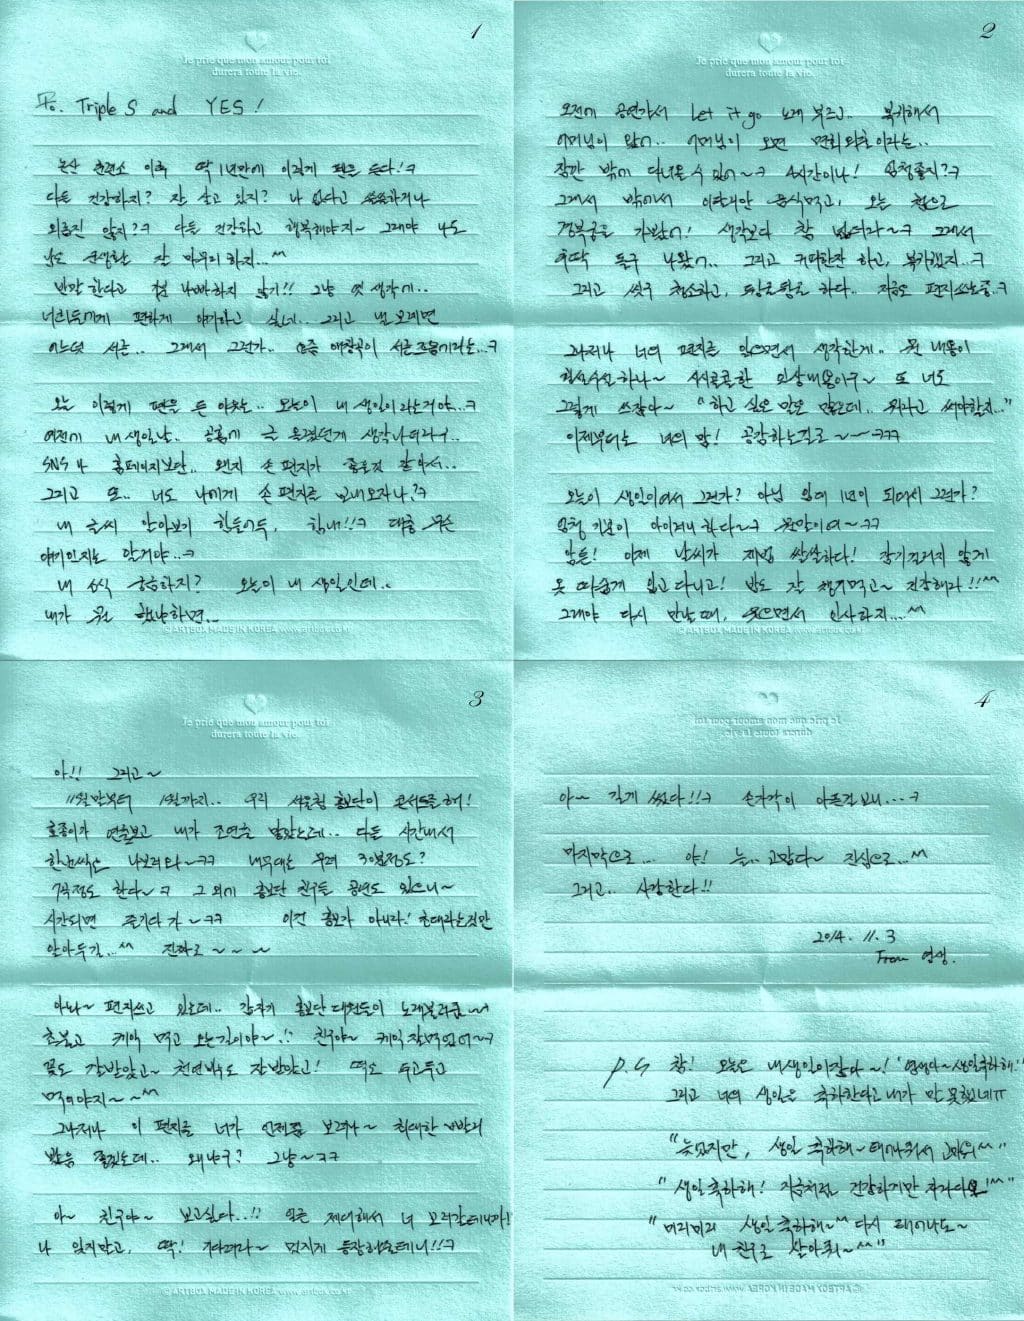 1
Je prie que mon amour pour toi
durera toute la vie.
To. Triple S and YES!
논산 훈련소 이후 딱 1년만에 이렇게 펜을 든다!ㅋ
다들 건강하지? 잘 살고 있지? 나 없다고 쓸쓸하거나
외롭진 않지?ㅋ 다들 건강하고 행복해야지~ 그래야 나도
남은 군생활 잘 마무리하지...^^
반말한다고 기분 나빠하지 않기!! 그냥 옛 생각에..
너희들에게 편하게 얘기하고 싶네.. 그리고 낼모레면
어느덧 서른.. 그래서 그런가.. 요즘 애창곡이 서른 즈음에라는...ㅋ
오늘 이렇게 펜을 든 이유는.. 오늘이 내 생일이라는거야...ㅋ
예전에 내 생일날.. 공홈에 글 올렸던게 생각나더라구..
SNS나 홈페이지보단.. 왠지 손 편지가 좋을것 같아서..
그리고 또.. 너도 나에게 손 편지를 보내오자나.?ㅋ
내 글씨 알아보기 힘들어두, 힘내!!!ㅋ 대충 무슨
얘기인지는 알거야..ㅋ
내 소식 궁금하지? 오늘이 내 생일인데..
내가 뭘 했냐하면...
©ARTBOX MADE IN KOREA www.artbox.co.kr
2
Je prie que mon amour pour toi
durera toute la vie.
오전에 공연가서 Let it go 노래 부르고.. 복귀해서
어머님이 왔어.. 어머님이 오면 면회외출이라는..
잠깐 밖에 다녀올 수 있어~ㅋ 4시간이나! 엄청좋지?ㅋ
그래서 밖에서 이탈리안 음식먹고, 오늘 첨으로
경복궁을 가봤어! 생각보다 참 넓더라~ㅋ 그래서
후딱 둘러 나왔어.. 그리고 커피한잔 하고, 복귀했지..ㅋ
그리고 씻구 청소하고, 뒹굴뒹굴 하다.. 지금은 편지쓰는중.ㅋ
그나저나 너의 편지를 읽으면서 생각한게.. 뭔 내용이
뒤죽박죽하나~ 시시콜콜한 일상내용이구~ 또 너도
그렇게 쓰잖다~ "하고 싶은 말은 많은데.. 뭐라고 써야할지..."
이제부터는 너의 맘! 공감하는걸로~~~ㅋㅋㅋ
오늘이 생일이여서 그런가? 아님 입대 1년이 되어서 그런가?
엄청 기분이 아이러니하다~ㅋ 뭔말이여~ㅋㅋ
암튼! 이제 날씨가 제법 쌀쌀하다! 감기걸리지 않게
옷 따숩게 입고 다니고! 밥도 잘 챙겨먹고~ 건강해라!!^^
그래야 다시 만날때, 웃으면서 인사하지....^^
©ARTBOX MADE IN KOREA www.artbox.co.kr
3
Je prie que mon amour pour toi
durera toute la vie.
아!! 그리고~
11월말부터 1월까지.. 우리 서울청 홍보단이 콘서트를 해!
호종이가 연출보고 내가 조연출 맡았는데.. 다들 시간내서
한번씩은 나보러와~ㅋㅋ 내무대는 무려 30분정도?
7곡정도 한다~ㅋ 그 외에 홍보단 친구들 공연도 있으니~
시간되면 즐기다 가~ㅋㅋ 이건 홍보가 아니라! 초대라는것만
알아두길...^^ 진짜로~~~
아나~ 편지쓰고 있는데.. 갑자기 홍보단 대원들이 노래불러줌~
초불고 케익 먹고 오는길이야~!? 친구야~ 케익 잘먹었어~ㅋ
꽃도 잘받았고~ 천연비누도 잘받았고! 떡도 두고두고
먹어야지~~^^
그나저나 이 편지를 너가 언제쯤 보려나~ 최대한 빨리
봤음 좋겠는데.. 왜냐구? 그냥~ㅋㅋ
아~ 친구야~ 보고싶다..!! 얼른 제대해서 너 보러갈테니까!
나 잊지말고, 딱! 기다려라~ 멋지게 등장해줄테니!!ㅋ
©ARTBOX MADE IN KOREA www.artbox.co.kr
4
Je prie que mon amour pour toi
durera toute la vie.
아~ 길게 썼다!!ㅋ 손가락이 아픈걸 보니...ㅋ
마지막으로... 야! 늘.. 고맙다~ 진심으로...^^
그리고.. 사랑한다!!
2014. 11. 3
From 영생.
P.S 참! 오늘은 내생일이잖아~! '영생아~ 생일축하해!'
그리고 너의 생일은 축하한다고 내가 말 못했네ㅠ
"늦었지만, 생일 축하해~ 태어나줘서 고마워^^"
"생일축하해! 지금처럼 건강하게만 자라다오!^^"
"미리미리 생일 축하해~^^ 다시 태어나도~
내 친구로 살아줘~^^"
©ARTBOX MADE IN KOREA www.artbox.co.kr